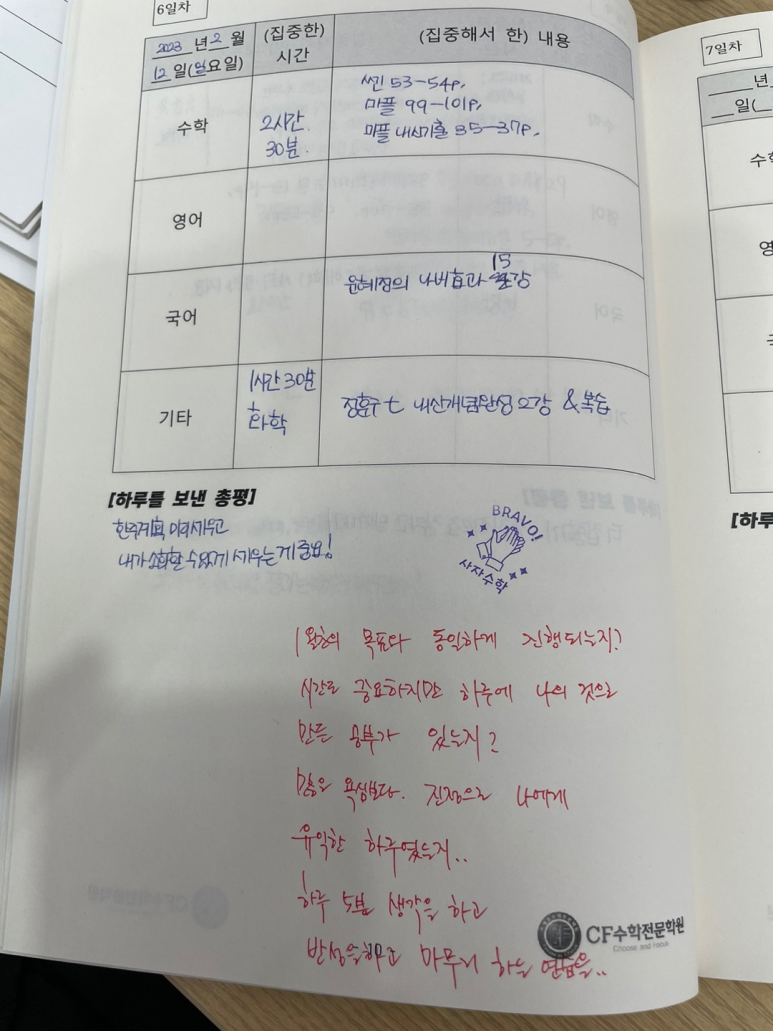 6일차
2023 년 2 월
12 일(일요일)
(집중한)
시간
(집중해서 한) 내용
수학
2시간
30분.
쎈 53-54p.
마플 99-101p.
마플 내신기출 35-37p.
영어
국어
윤혜정의 나비효과 15강
기타
1시간 30분
화학
정훈구 t 내신개념완성 2강 & 복습
[하루를 보낸 총평]
한주계획 미리 세우고
내가 소화할 수 있게 세우는 게 중요!
BRAVO!
사자수학
1월의 목표와 동일하게 진행되는지?
시간도 중요하지만 하루에 나의 것으로
만든 공부가 있는지?
많은 욕심보다. 진정으로 나에게
유익한 하루였는지..
하루 5분 생각을 하고
반성을 하고 마무리 하는 연습을..
10
CF수학전문학원
Choose and Focus
7일차
년
일(
수학
영
[하루